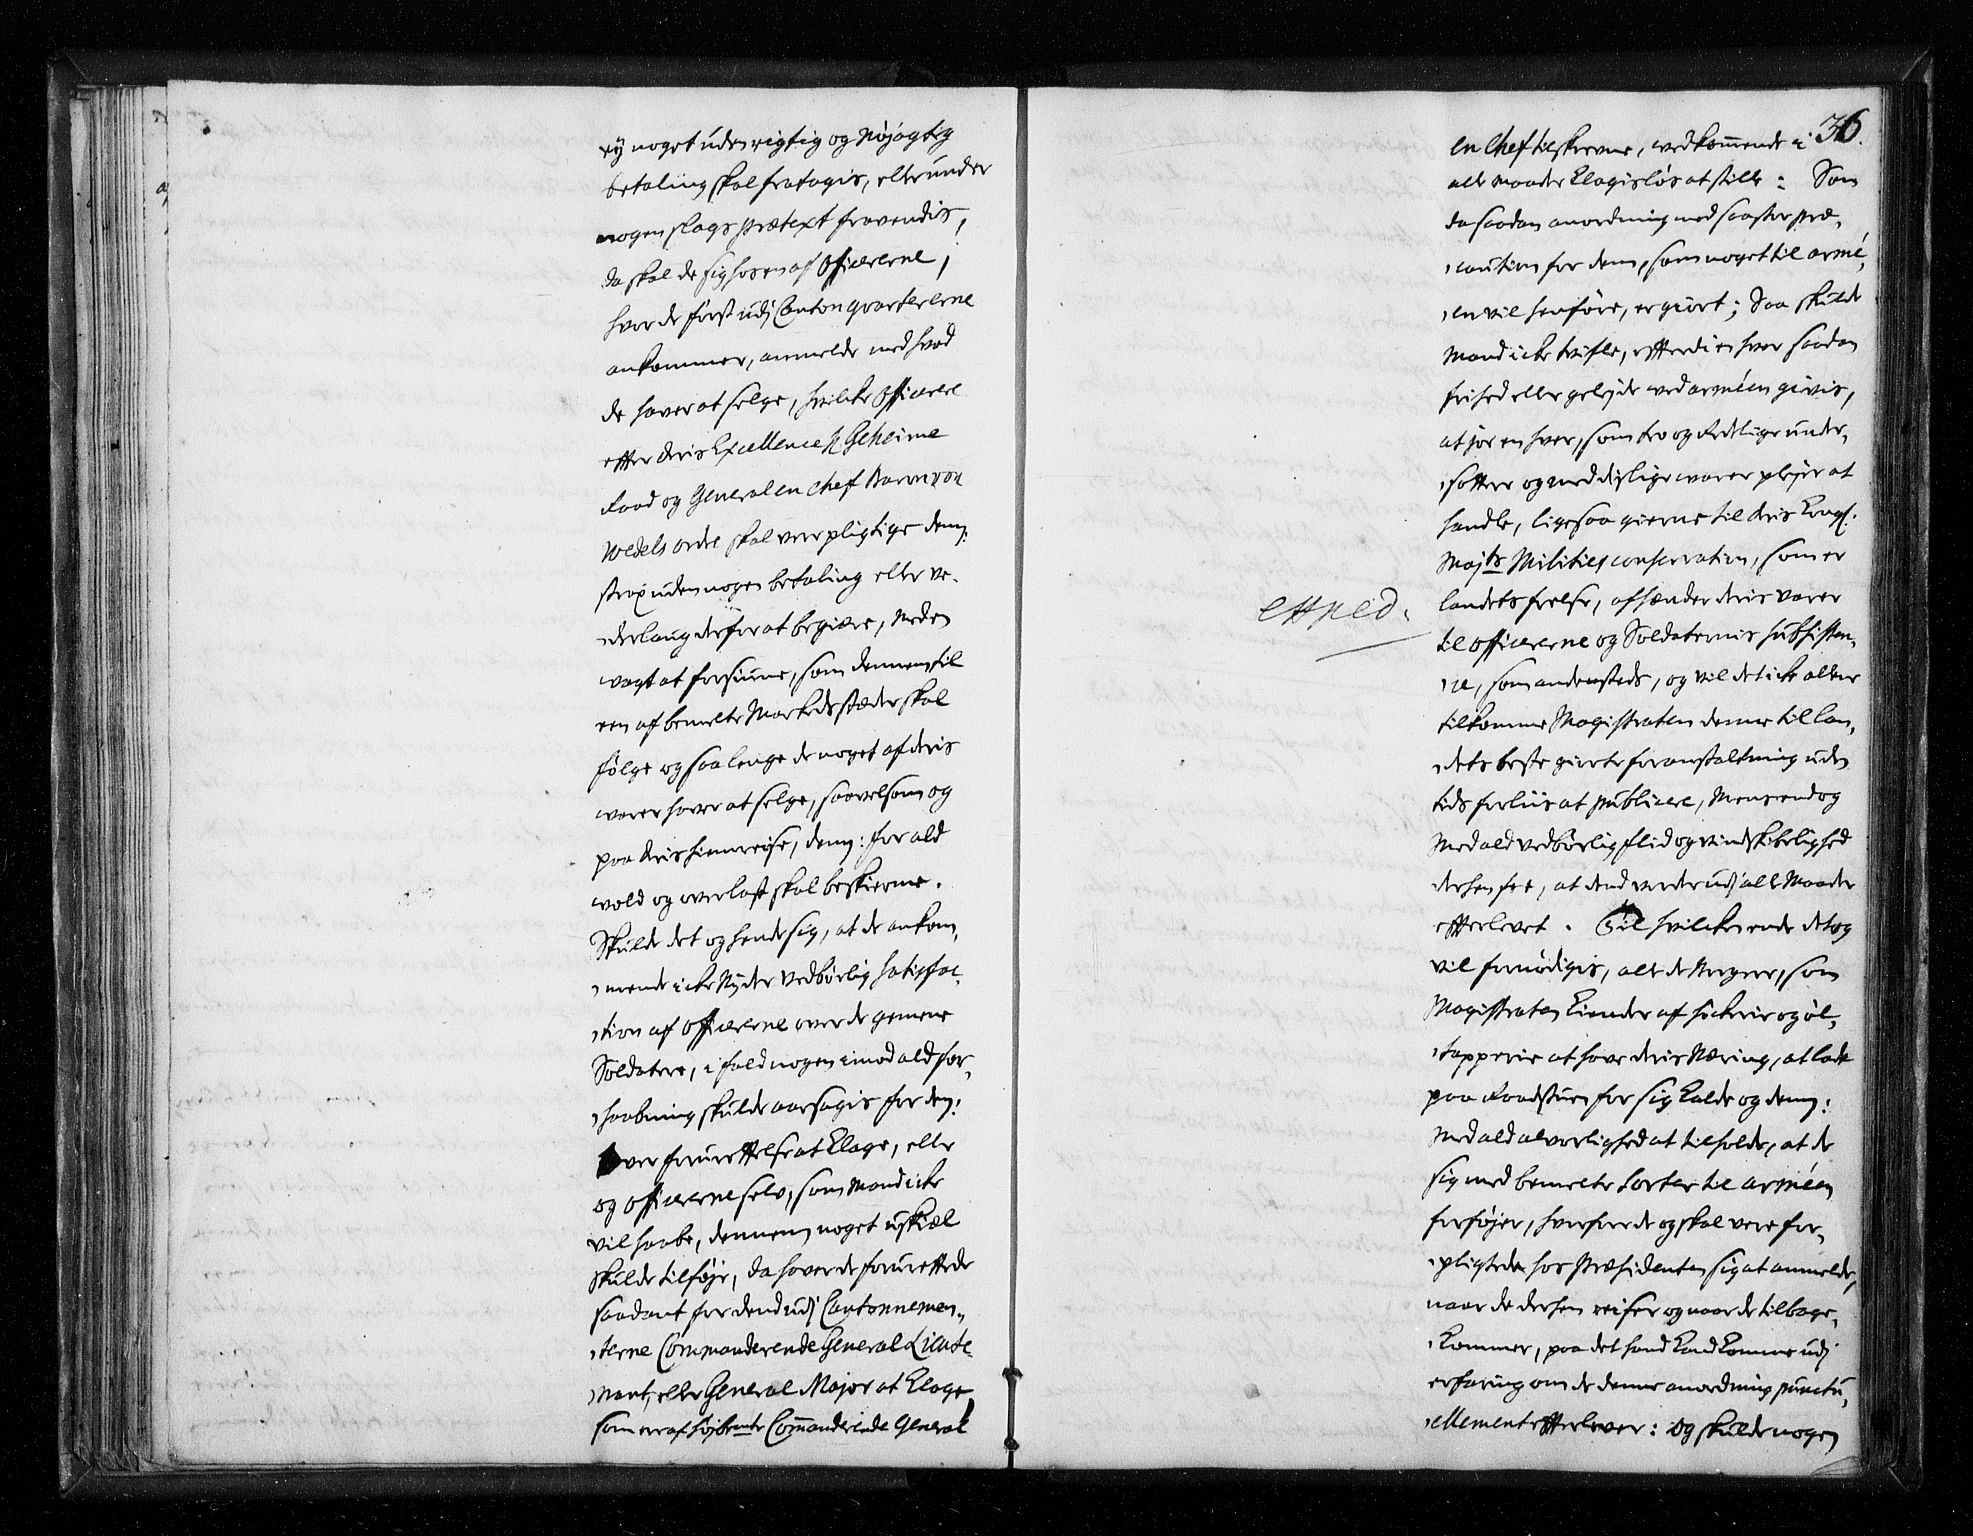 ey noget uden rigtig og nøjagtig
betaling skal fratagis, eller under
nogen slags prætext fravendis,
da skal de sig hos en af Officererne,
hvor de først udj Cantonqvartererne
ankommer, anmelde med hvad
de haver at selge, hvilcke Officerer
efter deris Excellence Hr Geheime
Raad og General en Chef Baron von
Wedels ordre skal være pligtige dem,
strax uden nogen betaling eller ve-
derlaug derfor at begiære, med en
vagt at forsiune, som dennem til
een af bemelte Markedsstæder skal
følge og saalenge de noget af deris
varer haver at selge, saavelsom og
paa deris hiemreise, dem: for ald
vold og overlast skal beskierme.
Skulde det og hende sig, at de ankom,
mende icke nyder vedbørlig satisfac,
tion af Officererne over de gemene
Soldatere, i fald nogen imod ald for,
haabning skulde aarsagis for dem:
over forurettelse at klage, eller
og Officererne selv, som Mand icke
vil haabe, dennem noget uskiæl
skulde tilføje, da haver de forurettede
saadant for dend udj Cantonnemen,
terne Commanderende General Lieute,
nant, eller General Major at klage,
som er af højbemte Commanderende General
36.
en Chef tilskrevne, vedkommende i
alle maader klagisløs at stille: Som
da saadan anordning med saa stor præ,
caution for dem, som noget til armé,
en vil henføre, er giort; Saa skulde
Mand icke tvifle, efterdi en hver saadan
frihed eller gelejde ved arméen givis,
at jo en hver, som tro og Redelige under,
satter og med dislige varer plejer at
handle, ligesaa gierne til deris Kongl.
Majts Milities conservation, som er
landets frelse, afhænder deris varer
til Officererne og Soldaternis subsisten,
ce, som andensteds, og vil det icke allene
tilkomme Magistraten denne til lan,
dets beste giorte foranstaltning uden
tids forliis at publicere, Mens endog
Med ald vedbørlig flid og vindskibelighed
derhen see, at dend vorder udj alle Maader
efterlevet. Til hvilcken ende det og
vil fornødigis, alle de Borgere, som
Magistraten kiender af høckerie og øl,
tapperie at have deris Næring, at lade
paa Raadstuen for sig kalde og dem:
Med ald alvorlighed at tilholde, at de
sig med bemelte sorter til arméen
forføjer, hvorfore de og skal være for,
pligtede hos Præsidenten sig at anmelde,
naar de derhen reiser og naar de tilbage,
kommer, paa det hand kand komme udj
erfaring om de denne anordning punctu,
ellement efterlever: og skulde nogen